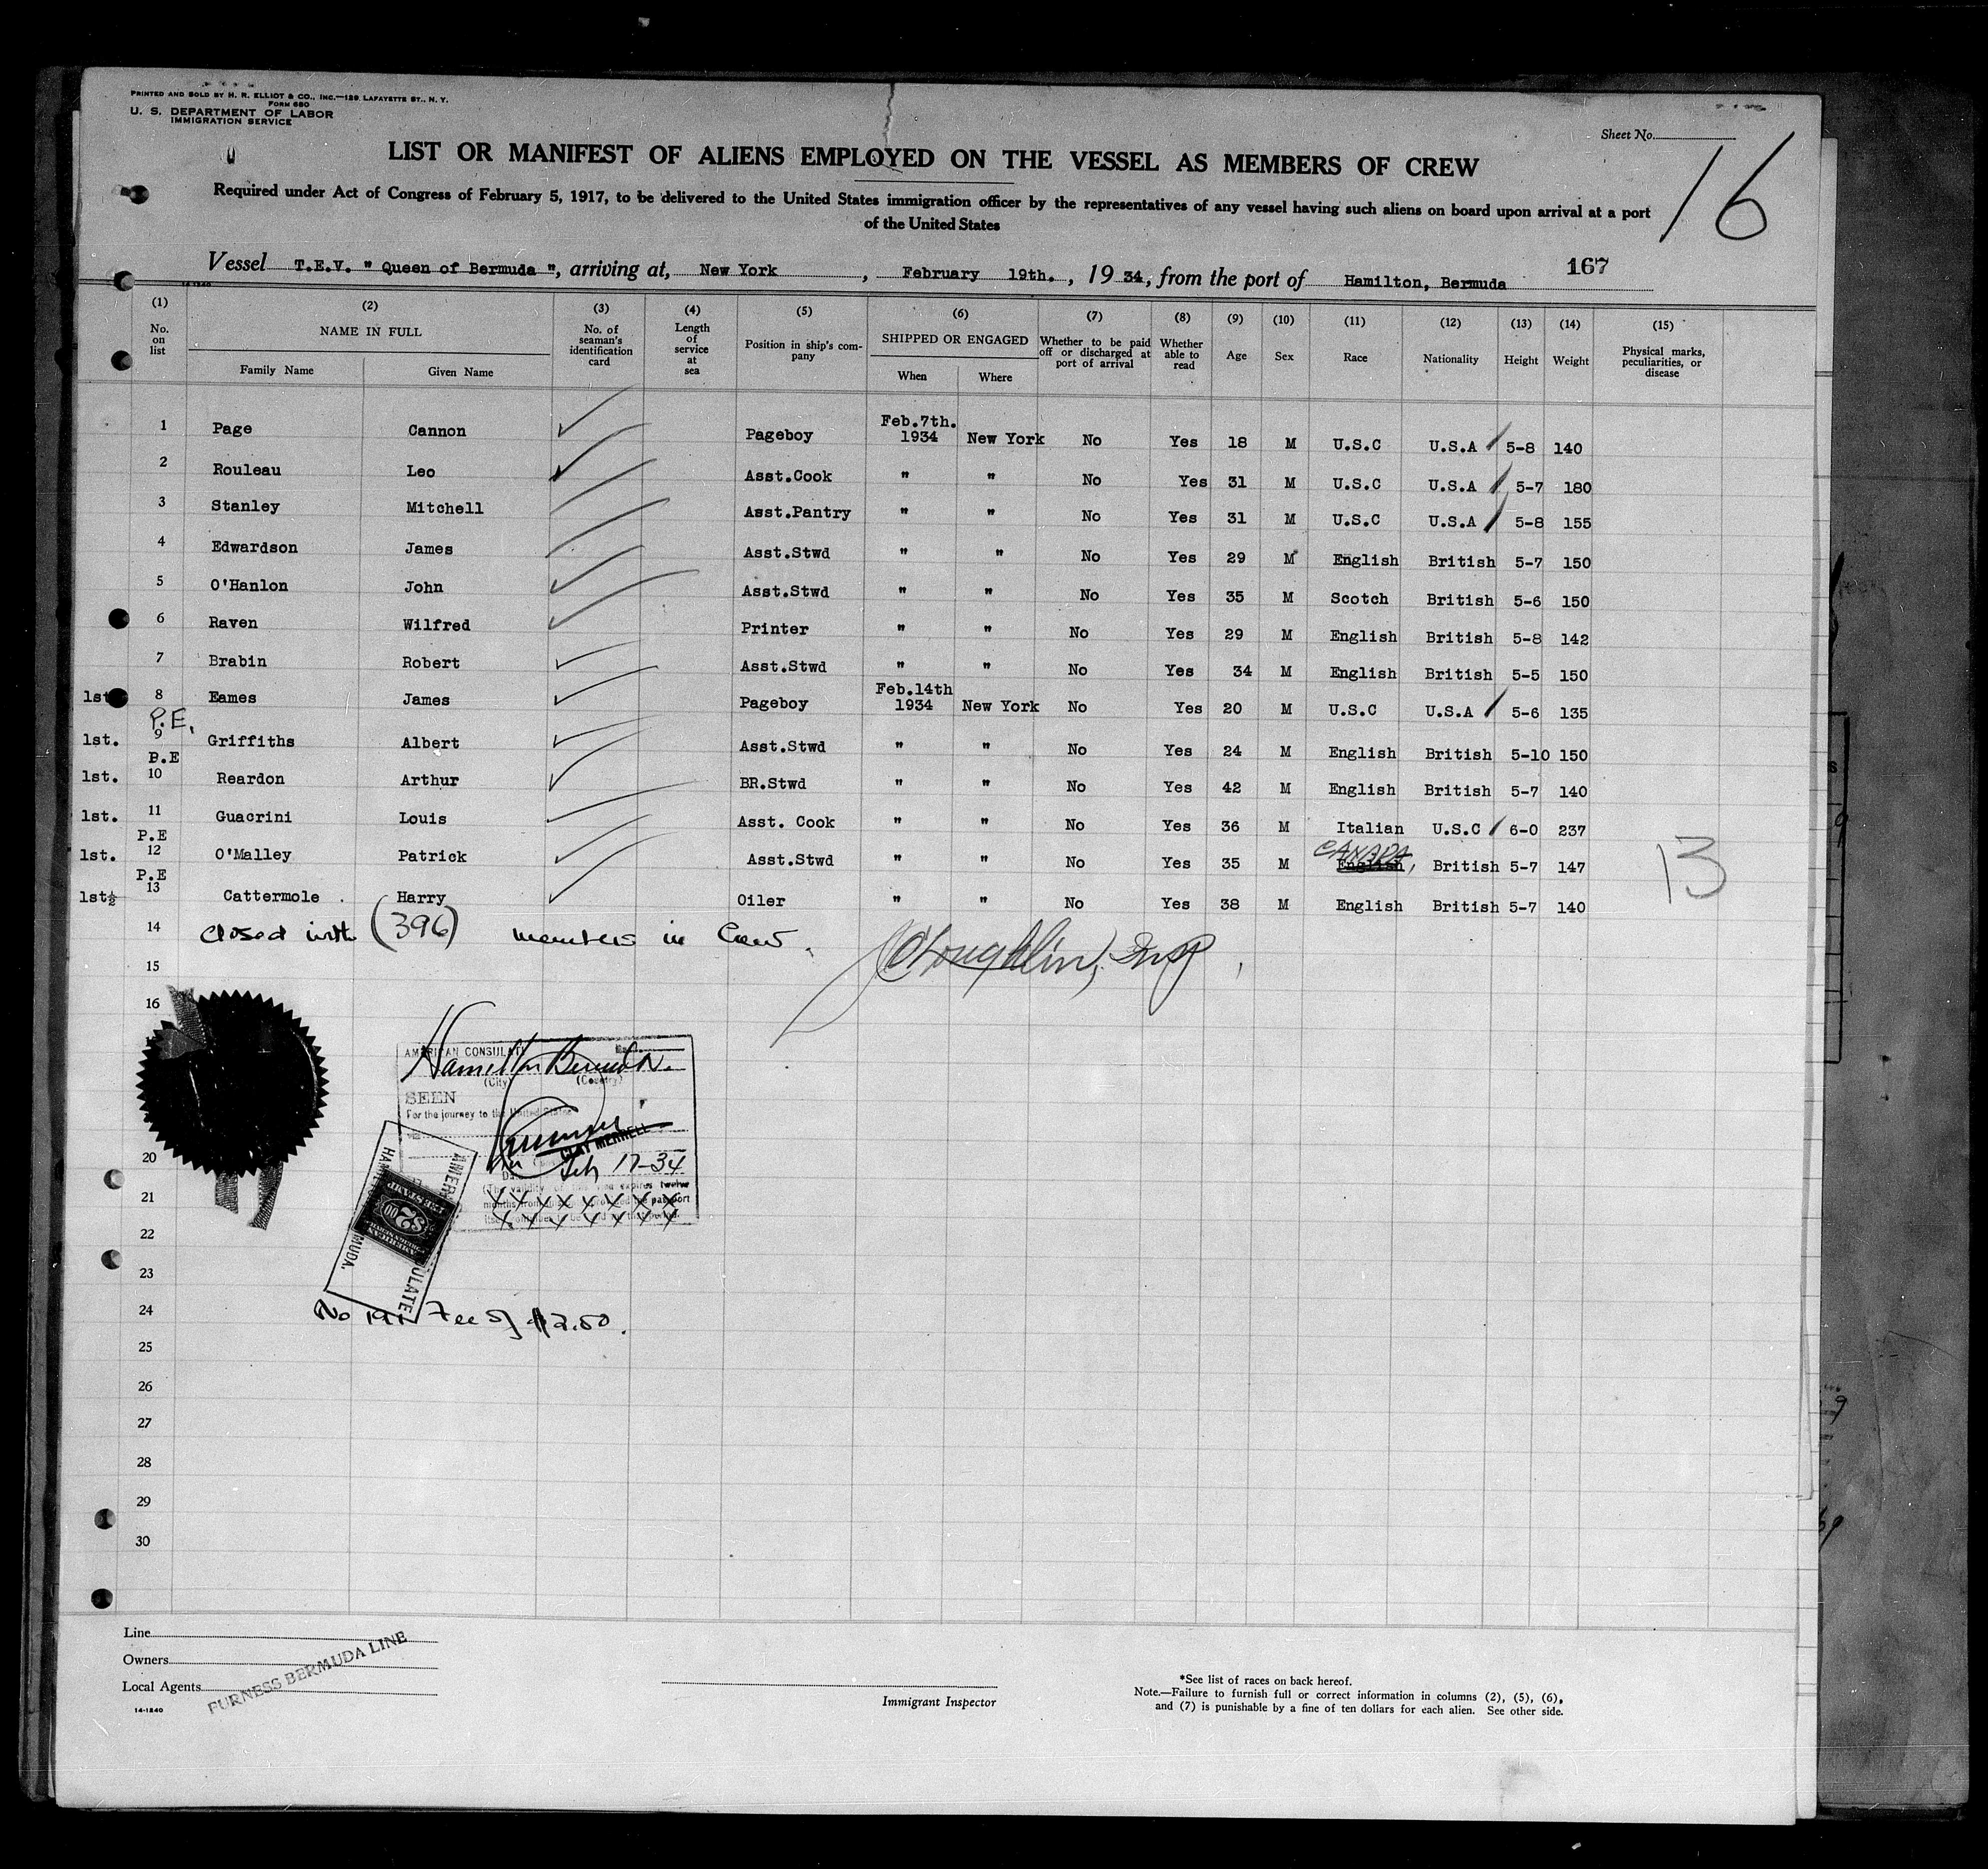 PRINTED AND SOLD BY H. R. ELLIOT & CO., INC.—129 LAFAYETTE ST., N. Y.
FORM 680
U. S. DEPARTMENT OF LABOR
IMMIGRATION SERVICE
Sheet No.
16
LIST OR MANIFEST OF ALIENS EMPLOYED ON THE VESSEL AS MEMBERS OF CREW
Required under Act of Congress of February 5, 1917, to be delivered to the United States immigration officer by the representatives of any vessel having such aliens on board upon arrival at a port
of the United States
Vessel T.E.V. " Queen of Bermuda ", arriving at, New York, February 19th., 19 34, from the port of Hamilton, Bermuda 167
14-1240
(1) No. on list (2) NAME IN FULL Family Name Given Name (3) No. of seaman's identification card (4) Length of service at sea (5) Position in ship's company (6) SHIPPED OR ENGAGED When Where (7) Whether to be paid off or discharged at port of arrival (8) Whether able to read (9) Age (10) Sex (11) Race (12) Nationality (13) Height (14) Weight (15) Physical marks, peculiarities, or disease
1 Page Cannon Pageboy Feb.7th. 1934 New York No Yes 18 M U.S.C U.S.A 5-8 140
2 Rouleau Leo Asst.Cook " " No Yes 31 M U.S.C U.S.A 5-7 180
3 Stanley Mitchell Asst.Pantry " " No Yes 31 M U.S.C U.S.A 5-8 155
4 Edwardson James Asst.Stwd " " No Yes 29 M English British 5-7 150
5 O'Hanlon John Asst.Stwd " " No Yes 35 M Scotch British 5-6 150
6 Raven Wilfred Printer " " No Yes 29 M English British 5-8 142
7 Brabin Robert Asst.Stwd " " No Yes 34 M English British 5-5 150
1st 8 Eames James Pageboy Feb.14th 1934 New York No Yes 20 M U.S.C U.S.A 5-6 135
P.E.
1st. 9 Griffiths Albert Asst.Stwd " " No Yes 24 M English British 5-10 150
P.E
1st. 10 Reardon Arthur BR.Stwd " " No Yes 42 M English British 5-7 140
1st. 11 Guacrini Louis Asst. Cook " " No Yes 36 M Italian U.S.C 6-0 237
P.E
1st. 12 O'Malley Patrick Asst.Stwd " " No Yes 35 M CANADA English, British 5-7 147
13
P.E
1st½ 13 Cattermole . Harry Oiler " " No Yes 38 M English British 5-7 140
14 Closed with (396) members in Crew.
15
16
AMERICAN CONSULATE
Hamilton Bermuda.
(City) (Country)
SEEN
For the journey to the United States
CLAY MERRELL
Feb 17-34
20
21
22
23
24
AMERICAN CONSULATE
HAMILTON BERMUDA.
AMERICAN
FEE STAMP
$2.00
Fee of $2.50.
25
26
27
28
29
30
Line
Owners
Local Agents
FURNESS BERMUDA LINE
14-1240
Immigrant Inspector
*See list of races on back hereof.
Note.—Failure to furnish full or correct information in columns (2), (5), (6),
and (7) is punishable by a fine of ten dollars for each alien. See other side.